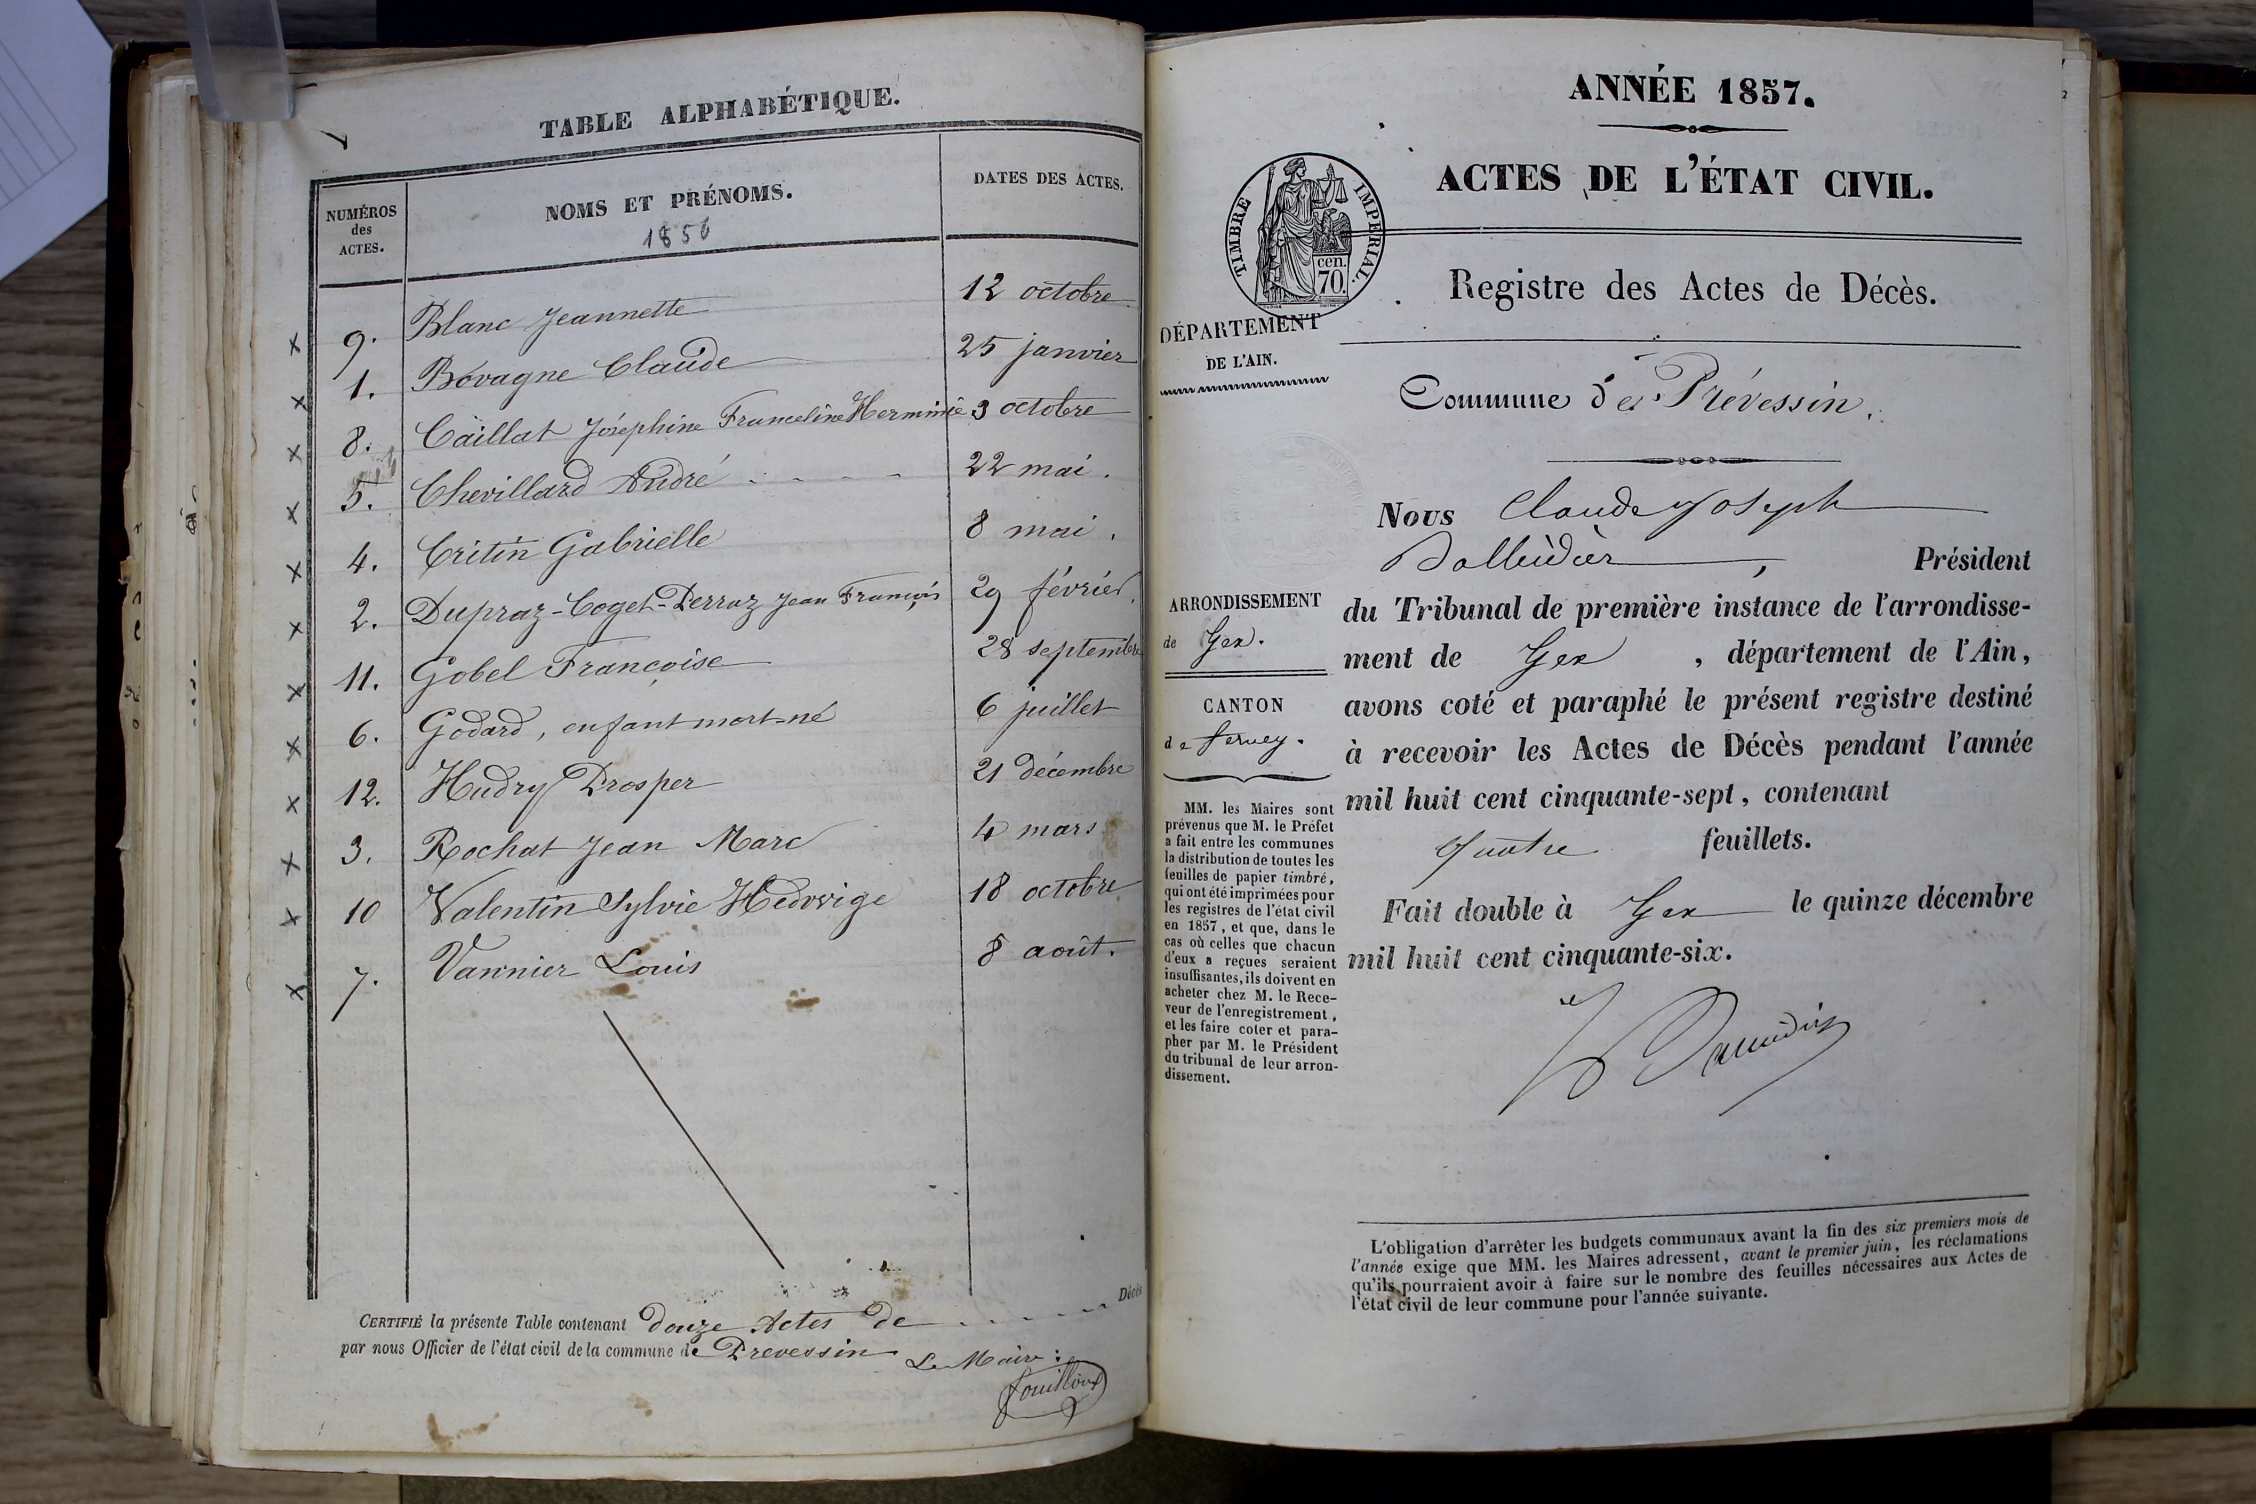 TABLE ALPHABÉTIQUE.
NUMÉROS des ACTES. NOMS ET PRÉNOMS. DATES DES ACTES.
1856
9. Blanc Jeannette 12 octobre
1. Bovagne Claude 25 janvier
8. Caillat Joséphine Franceline Herminie 3 octobre
5. Chevillard André 22 mai.
4. Critin Gabrielle 8 mai.
2. Dupraz-Coget-Perraz Jean François 29 février.
11. Gobel Françoise 28 septembre
6. Godard, enfant mort-né 6 juillet
12. Hudry Prosper 21 décembre
3. Rochat Jean Marc 4 mars
10 Valentin Sylvie Hedwige 18 octobre
7. Vannier Louis 8 août.
CERTIFIÉ la présente Table contenant douze Actes de Décès
par nous Officier de l'état civil de la commune de Prevessin
Le Maire :
Fouilloux
ANNÉE 1857.
ACTES DE L'ÉTAT CIVIL.
TIMBRE IMPÉRIAL.
cen.
70.
Registre des Actes de Décès.
DÉPARTEMENT
DE L'AIN.
Commune de Prévessin.
Nous Claude Joseph
, Président
du Tribunal de première instance de l'arrondisse-
ment de Gex , département de l'Ain,
avons coté et paraphé le présent registre destiné
à recevoir les Actes de Décès pendant l'année
mil huit cent cinquante-sept, contenant
quatre feuillets.
Fait double à Gex le quinze décembre
mil huit cent cinquante-six.
ARRONDISSEMENT
de Gex.
CANTON
de Ferney.
MM. les Maires sont
prévenus que M. le Préfet
a fait entre les communes
la distribution de toutes les
feuilles de papier timbré,
qui ont été imprimées pour
les registres de l'état civil
en 1857, et que, dans le
cas où celles que chacun
d'eux a reçues seraient
insuffisantes, ils doivent en
acheter chez M. le Rece-
veur de l'enregistrement,
et les faire coter et para-
pher par M. le Président
du tribunal de leur arron-
dissement.
L'obligation d'arrêter les budgets communaux avant la fin des six premiers mois de
l'année exige que MM. les Maires adressent, avant le premier juin, les réclamations
qu'ils pourraient avoir à faire sur le nombre des feuilles nécessaires aux Actes de
l'état civil de leur commune pour l'année suivante.